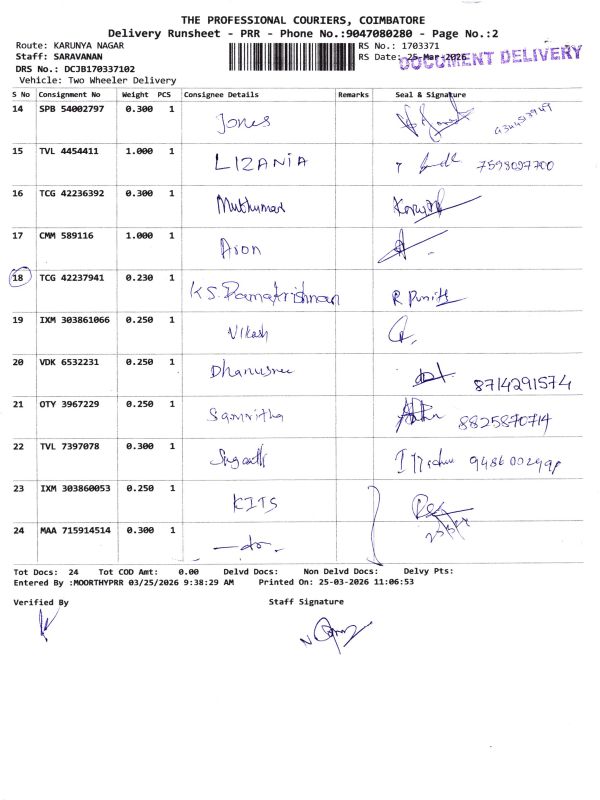 THE PROFESSIONAL COURIERS, COIMBATORE
Delivery Runsheet - PRR - Phone No.:9047080280 - Page No.:2
Route: KARUNYA NAGAR
Staff: SARAVANAN
DRS No.: DCJB170337102
Vehicle: Two Wheeler Delivery
RS No.: 1703371
RS Date: 25-Mar-2026
DOCUMENT DELIVERY
S No Consignment No Weight PCS Consignee Details Remarks Seal & Signature
14 SPB 54002797 0.300 1 Jones
15 TVL 4454411 1.000 1 LIZANIA 7598097700
16 TCG 42236392 0.300 1 Muthumar
17 CMM 589116 1.000 1 Aron
18 TCG 42237941 0.230 1 K.S. Ramakrishnan R Punith
19 IXM 303861066 0.250 1 Vikash
20 VDK 6532231 0.250 1 Dhanusree 8714291574
21 OTY 3967229 0.250 1 Samritha 8825870714
22 TVL 7397078 0.300 1
23 IXM 303860053 0.250 1 KITS
24 MAA 715914514 0.300 1 —do.
Tot Docs: 24 Tot COD Amt: 0.00 Delvd Docs: Non Delvd Docs: Delvy Pts:
Entered By :MOORTHYPRR 03/25/2026 9:38:29 AM Printed On: 25-03-2026 11:06:53
Verified By Staff Signature